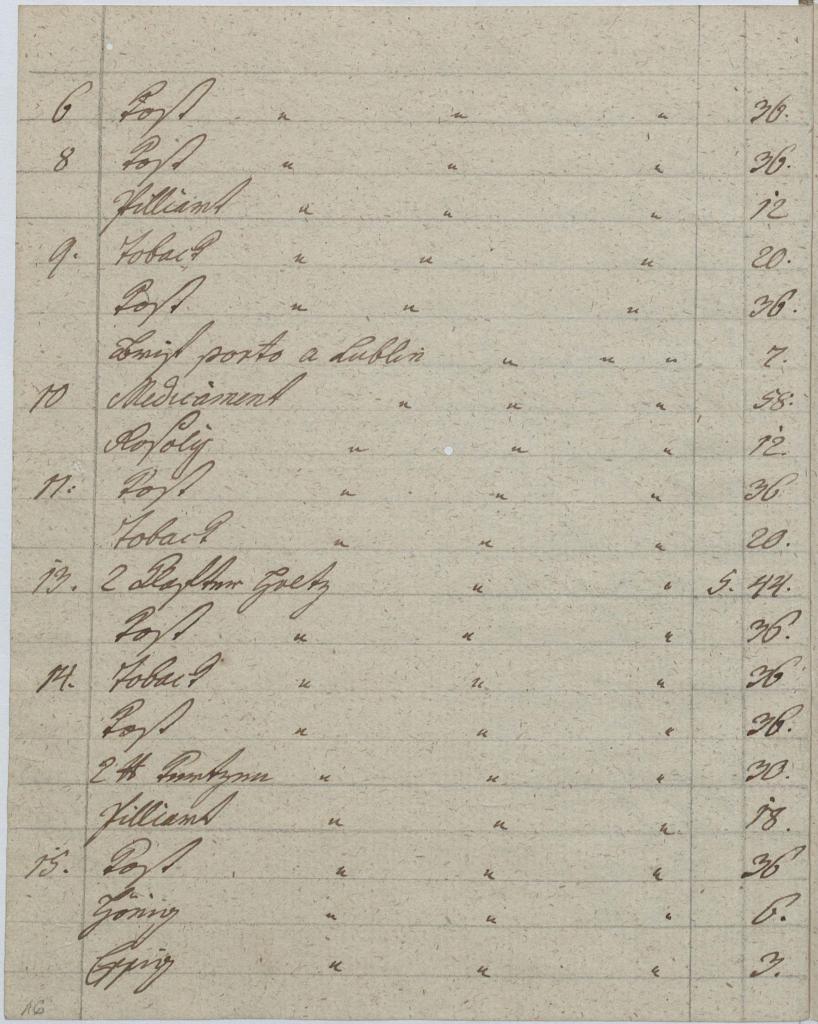 6 Kost " " " 36.
8 Kost " " " 36.
Pilliart " " " 12
9. Toback " " " 20.
Kost " " " 36.
Brief porto a Lublin " " " 7.
10 Medicament " " " 58.
Rosolÿ " " " 12.
11. Kost " " " 36
Toback " " " 20.
13. 2 Klafter Holtz " " 5. 44.
Kost " " " 36.
14. Toback " " " 36
Kost " " " 36.
2 ℔ Kertzen " " " 30.
Pilliart " " " 18.
15. Kost " " " 36
Hönig " " " 6.
Eßig " " " 3.
16